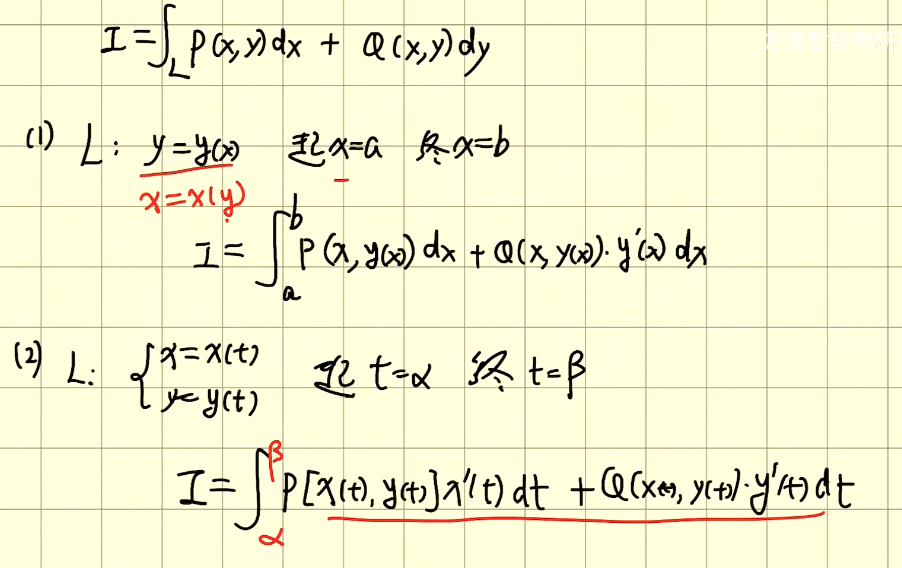 I = ∫_L P(x,y)dx + Q(x,y)dy
(1) L: y=y(x) 起x=a 终x=b
x=x(y)
I = ∫_a^b P(x, y(x)) dx + Q(x, y(x))·y'(x) dx
(2) L: { x=x(t) 起 t=α 终 t=β
y=y(t)
I = ∫_α^β P[x(t), y(t)]x'(t) dt + Q(x(t), y(t))·y'(t) dt